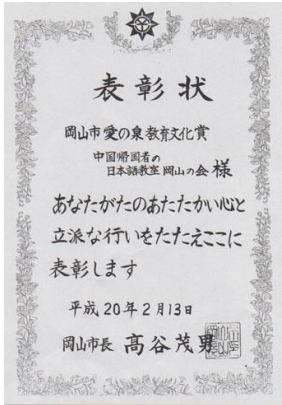 表彰状
岡山市愛の泉教育文化賞
中国帰国者の
日本語教室 岡山の会 様
あなたがたのあたたかい心と
立派な行いをたたえここに
表彰します
平成20年2月13日
岡山市長 髙谷茂男